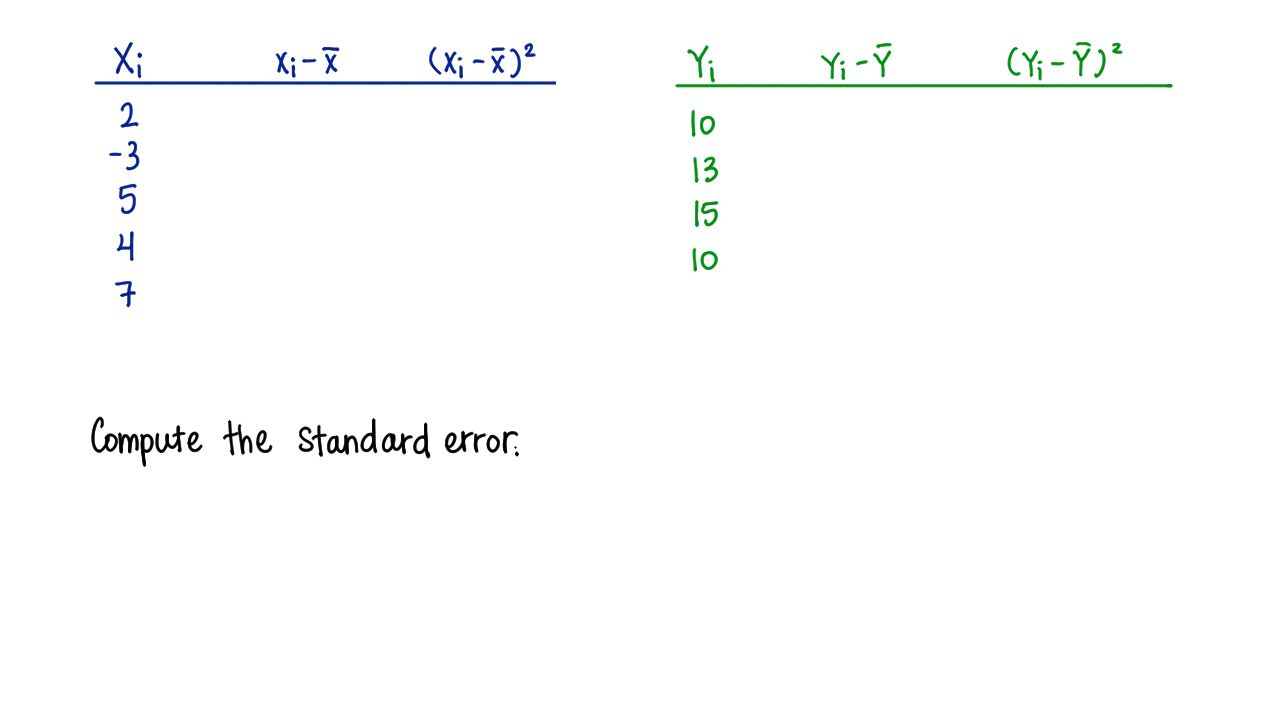 Xi xi - x̄ (xi - x̄)²
2
-3
5
4
7
Yi Yi - Ȳ (Yi - Ȳ)²
10
13
15
10
Compute the standard error: